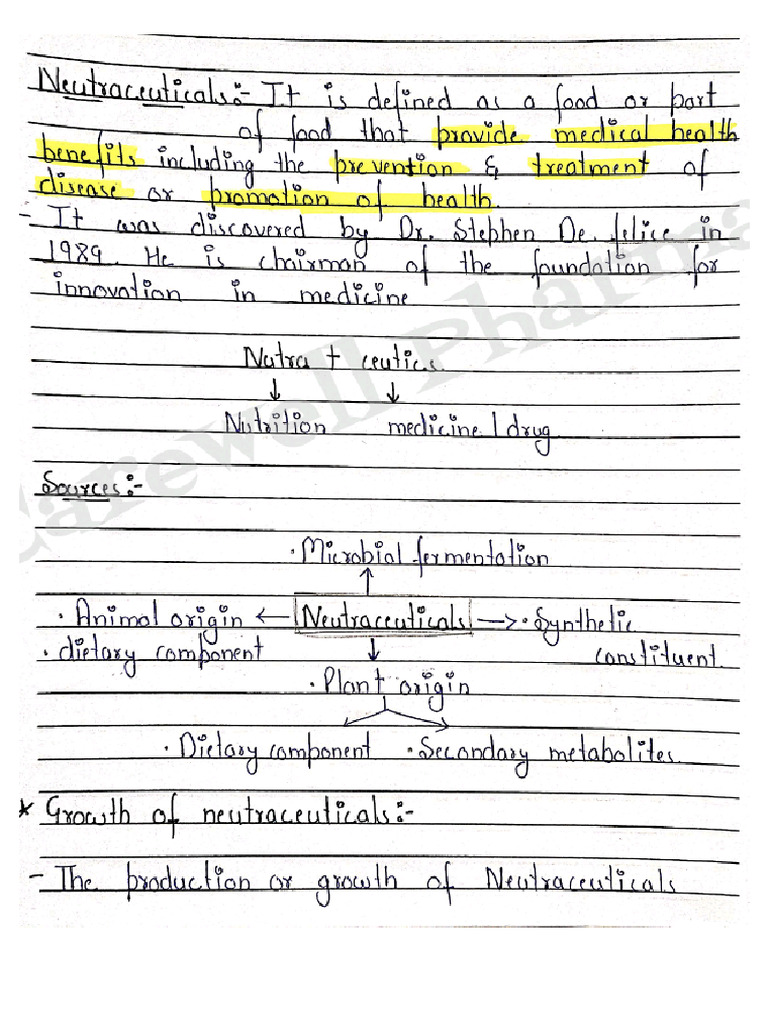 Neutraceuticals:- It is defined as a food or part
of food that provide medical health
benefits including the prevention & treatment of
disease or promotion of health.
- It was discovered by Dr. Stephen De. felice in
1989. He is chairman of the foundation for
innovation in medicine
Nutra + ceutics
↓ ↓
Nutrition medicine / drug
Sources:-
· Microbial fermentation
↑
· Animal origin ← Neutraceuticals → · Synthetic
· dietary component ↓ constituent
· Plant origin
· Dietary component · Secondary metabolites
* Growth of neutraceuticals:-
- The production or growth of Neutraceuticals
Carewell Pharma